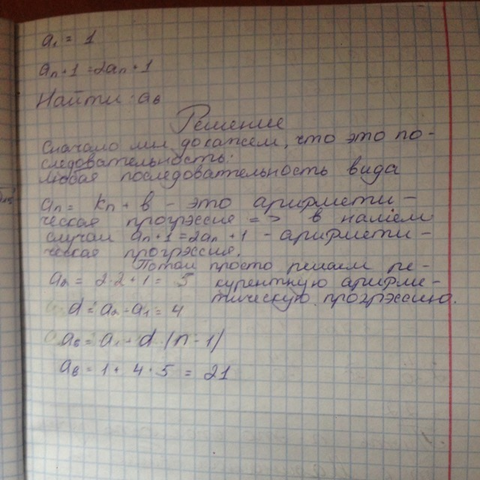 a₁ = 1
aₙ₊₁ = 2aₙ + 1
Найти: a₆
Решение
Сначало мы докажем, что это по-
следовательность:
Любая последовательность вида
aₙ = kₙ + в - это арифмети-
ческая прогрэссия => в нашем
случаи aₙ₊₁ = 2aₙ + 1 - арифмети-
ческая прогрэссия.
Потом просто решаем ре-
курентную арифме-
тическую прогрэссию.
a₂ = 2·2+1 = 5
d = a₂ - a₁ = 4
a₆ = a₁ + d·(n-1)
a₆ = 1 + 4·5 = 21